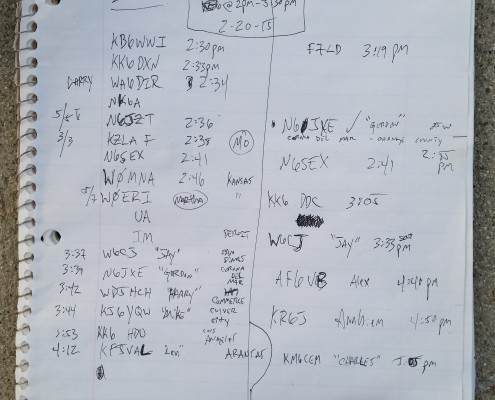 @ 2pm-3:30pm
2-20-15
KB6WWI 2:30pm
KK6DXN 2:33pm
LARRY WA6DIR 2:34
NK6A
5/8 N6JZT 2:36
3/3 KZLA F 2:38 MO
N6SEX 2:41
WØMNA 2:46 KANSAS
5/7 WØERI MARTHA "
UA
IM DETROIT
3:37 W6CJ "JAY"
3:39 N6JXE "GORDON" CORONA DEL MAR
3:42 WDJHCH "HARRY" COMMERCE
3:44 KJ6YQW "MIKE" CULVER City
3:53 KK6 HDU LOS ANGELES
4:12 KF5VAL "Len" ARANSAS
F7LD 3:19 pm
N6JXE ✓ "GORDON"
CORONA DEL MAR - ORANGE COUNTY
N6SEX 2:41
KK6 DDC 3:05
W6CJ "JAY" 3:33pm
AF6VB Alex 4:40 pm
KR6J Anaheim 4:50 pm
KM6CEM "CHARLES" 5:05 pm